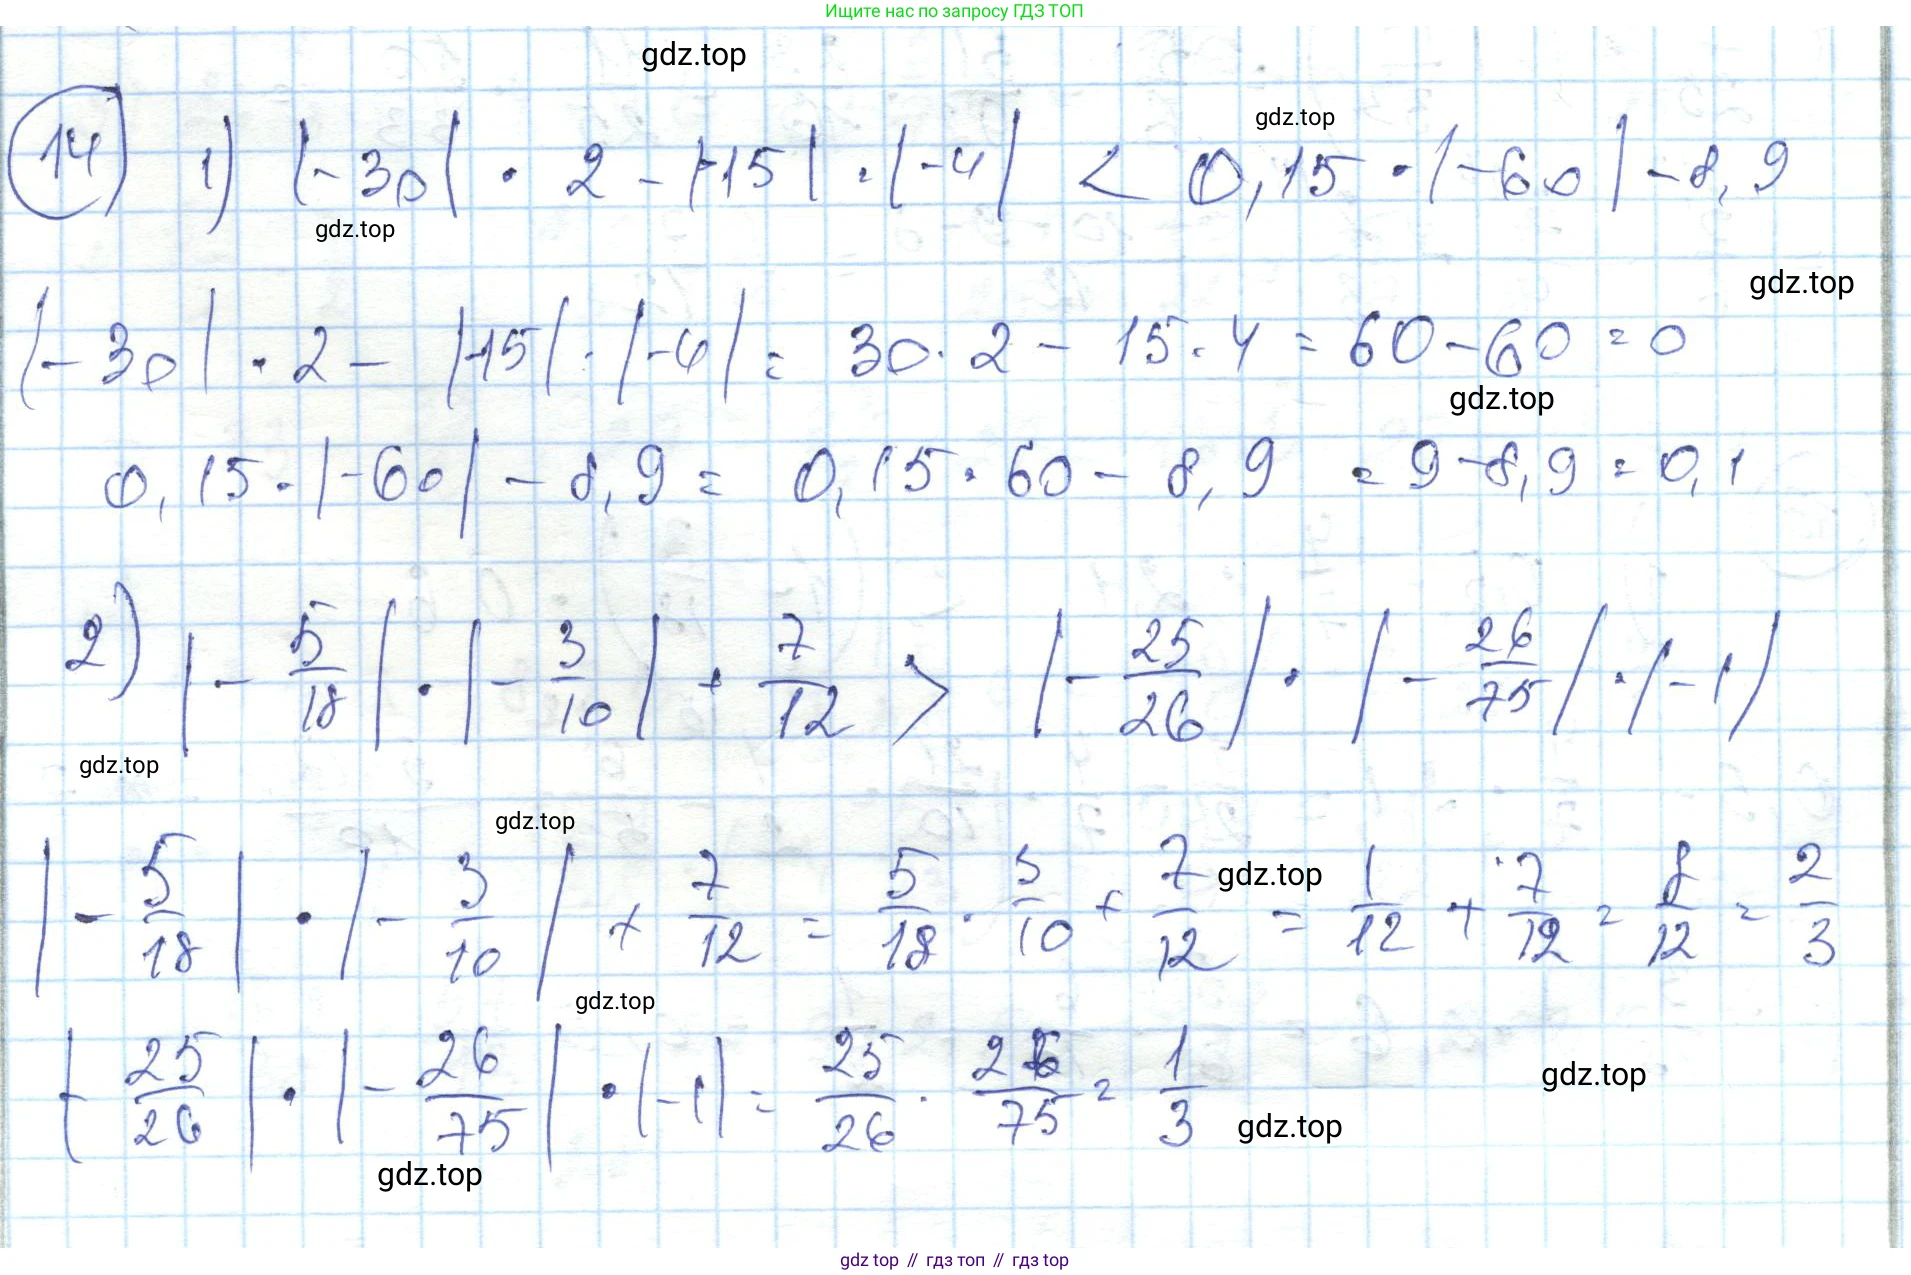 Ищите нас по запросу ГДЗ ТОП
gdz.top
14) 1) |-30| · 2 - |-15| · |-4| < 0,15 · |-60| - 8,9
gdz.top
gdz.top
gdz.top
|-30| · 2 - |-15| · |-4| = 30 · 2 - 15 · 4 = 60 - 60 = 0
gdz.top
0,15 · |-60| - 8,9 = 0,15 · 60 - 8,9 = 9 - 8,9 = 0,1
2) |-5/18| · |-3/10| + 7/12 > |-25/26| · |-26/75| · |-1|
gdz.top
gdz.top
|-5/18| · |-3/10| + 7/12 = 5/18 · 3/10 + 7/12 = 1/12 + 7/12 = 8/12 = 2/3
gdz.top
gdz.top
|-25/26| · |-26/75| · |-1| = 25/26 · 26/75 = 1/3
gdz.top
gdz.top
gdz.top
gdz top // гдз топ // гдз top